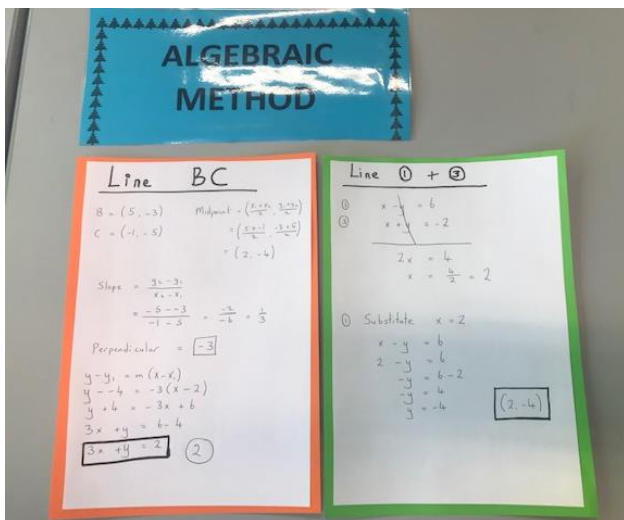 ALGEBRAIC
METHOD
Line BC
B = (5, -3) Midpoint = (x₁+x₂/2, y₁+y₂/2)
C = (-1, -5) = (5+-1/2, -3+-5/2)
= (2, -4)
Slope = y₂-y₁/x₂-x₁
= -5--3/-1-5 = -2/-6 = 1/3
Perpendicular = -3
y-y₁ = m(x-x₁)
y--4 = -3(x-2)
y+4 = -3x+6
3x +y = 6-4
3x +y = 2 ②
Line ① + ③
① x - y = 6
③ x + y = -2
2x = 4
x = 4/2 = 2
① Substitute x = 2
x - y = 6
2 - y = 6
-y = 6-2
-y = 4
y = -4
(2, -4)